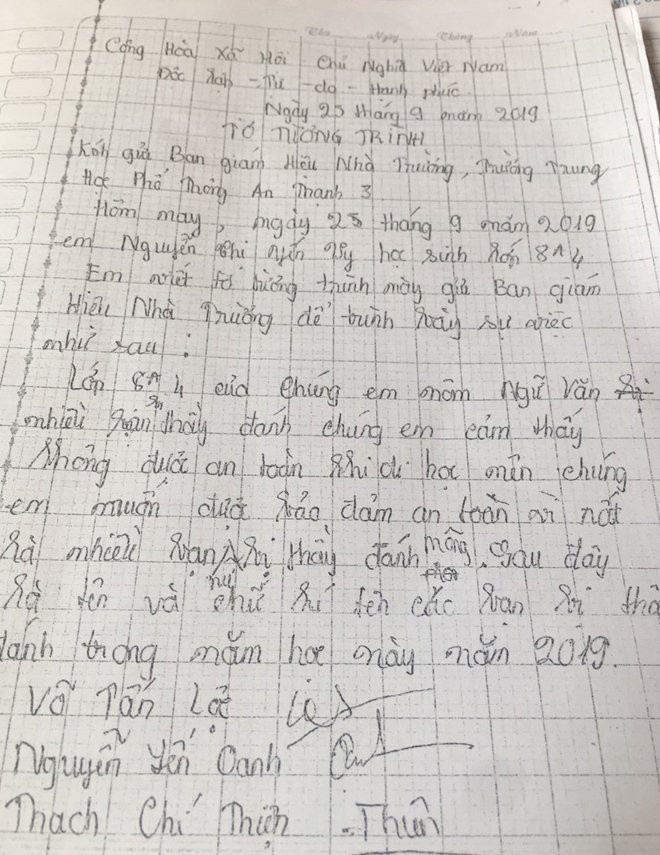 Thứ Ngày Tháng Năm
Cộng Hòa Xã Hội Chủ Nghĩa Việt Nam
Độc lập - Tự - do - Hạnh phúc
Ngày 25 tháng 9 năm 2019
TỜ TƯỜNG TRÌNH
Kính gửi Ban giám Hiệu Nhà Trường, Trường Trung
Học Phổ Thông An Thạnh 3
Hôm nay, ngày 25 tháng 9 năm 2019
em Nguyễn Thi Yến Vy học sinh lớp 8A4
Em viết tờ tường trình này gửi Ban giám
Hiệu Nhà Trường để trình bày sự việc
như sau:
Lớp 8A4 của chúng em môn Ngữ Văn
nhiều bạn bị thầy đánh chúng em cảm thấy
không được an toàn khi đi học nên chúng
em muốn được bảo đảm an toàn vì rất
là nhiều bạn bị thầy đánh mông. Sau đây
là tên và chữ kí tên các bạn bị thầ
đánh trong năm học này năm 2019.
Võ Tấn Lộc
Nguyễn Yến Oanh
Thạch Chí Thiện